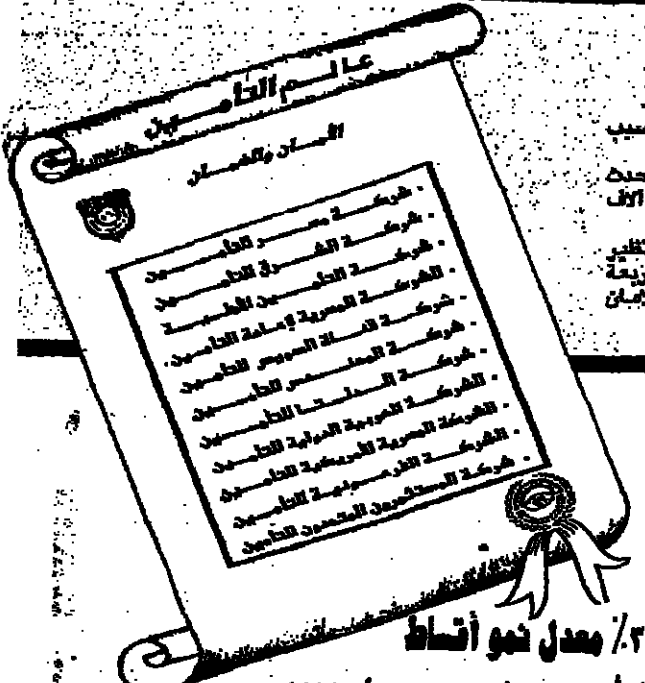 عالم التأمين
الأمان والضمان
. شركة مصر للتأمين
. شركة الشرق للتأمين
. شركة التأمين الأهلية
. الشركة المصرية لإعادة التأمين
. شركة قناة السويس للتأمين
. شركة المهندس للتأمين
. شركة الدلتا للتأمين
. الشركة العربية الدولية للتأمين
. الشركة المصرية الأمريكية للتأمين
. الشركة الفرعونية للتأمين
. شركة المستثمرون المتحدون للتأمين
حدث
آلاف
نظير
٣٪ معدل نمو أقساط